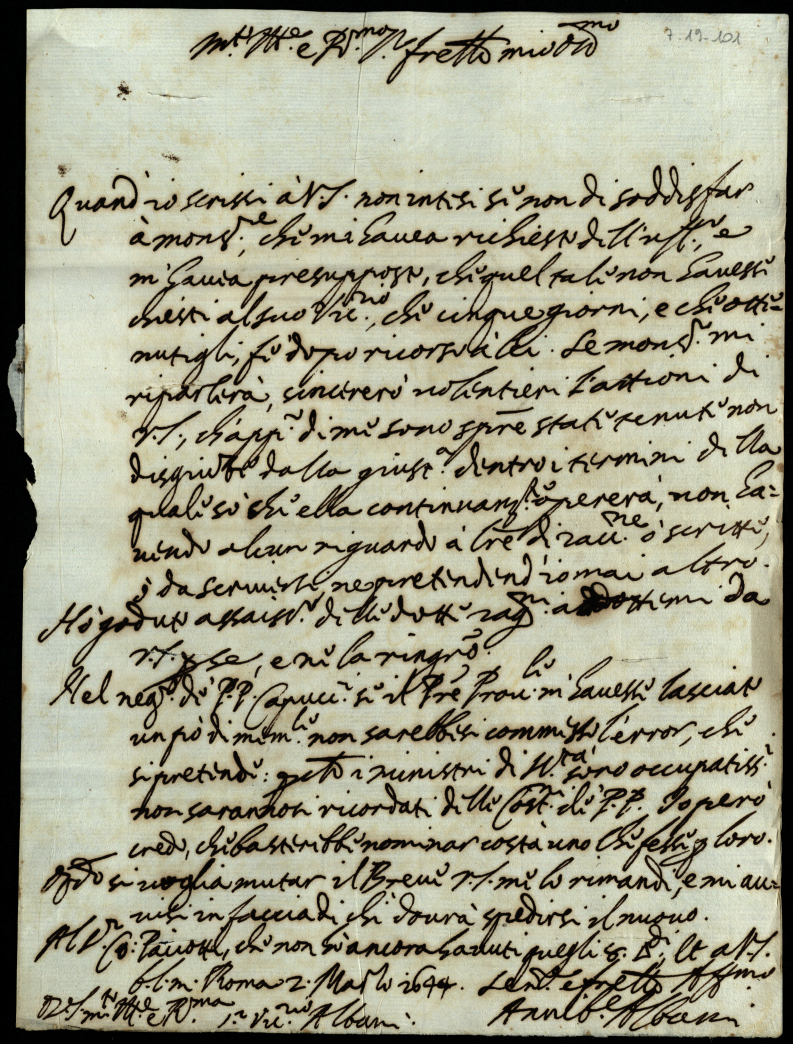 7-19-101
m.to Ill.e e R.mo S.r fratello mio oss.mo
Quand'io scrissi à V.S. non intesi se non di soddisfar
à mons.re, che mi havea richiesto dell'uff.o, e
m'havea presupposto, che quel tale non havesse
chiesti al suo Vic.rio, che cinque giorni, e che otte=
nutigli, fè dopo ricorso à lei. Se mons.re mi
riparlerà, sincererò volentieri l'attioni di
V.S., ch'app.o di me sono sp̄re state tenute non
disgiunte dalla giust.a dentro i termini della
quale sò che ella continuam.te opererà, non ha=
vendo alcun riguardo à l̄re di racc.ne ò scritte,
ò da scriversi, ne pretendend'io mai altro.
Hò goduto assaiss.o delle dotte rag.ni addottemi da
V.S. p se, e ne la ringr.o.
Nel neg.o de' P.P. Capucc.i se il P̄re Prov.le m'havesse lasciato
un pò di mem.le non sarebbesi commesso l'error, che
si pretende: i ministri di N. sono occupatiss.i
non sarannosi ricordati delle Cost.i de' P.P. Io però
credo, che basterebbe nominar costà uno che fesse p loro.
si voglia mutar il Breve V.S. me lo rimandi, e mi av=
visi in faccia di chi dovrà spedirsi il nuovo.
Al S.r Co: Paciotti, che non hò ancora havuti quegli &. Et a V.S.
b. l. m. Roma 2. Marzo 1644.
Di V.S. m.to Ill.e e R.ma
S.r Vic.rio Albani.
fratello Aff.mo
Annib.e Albani